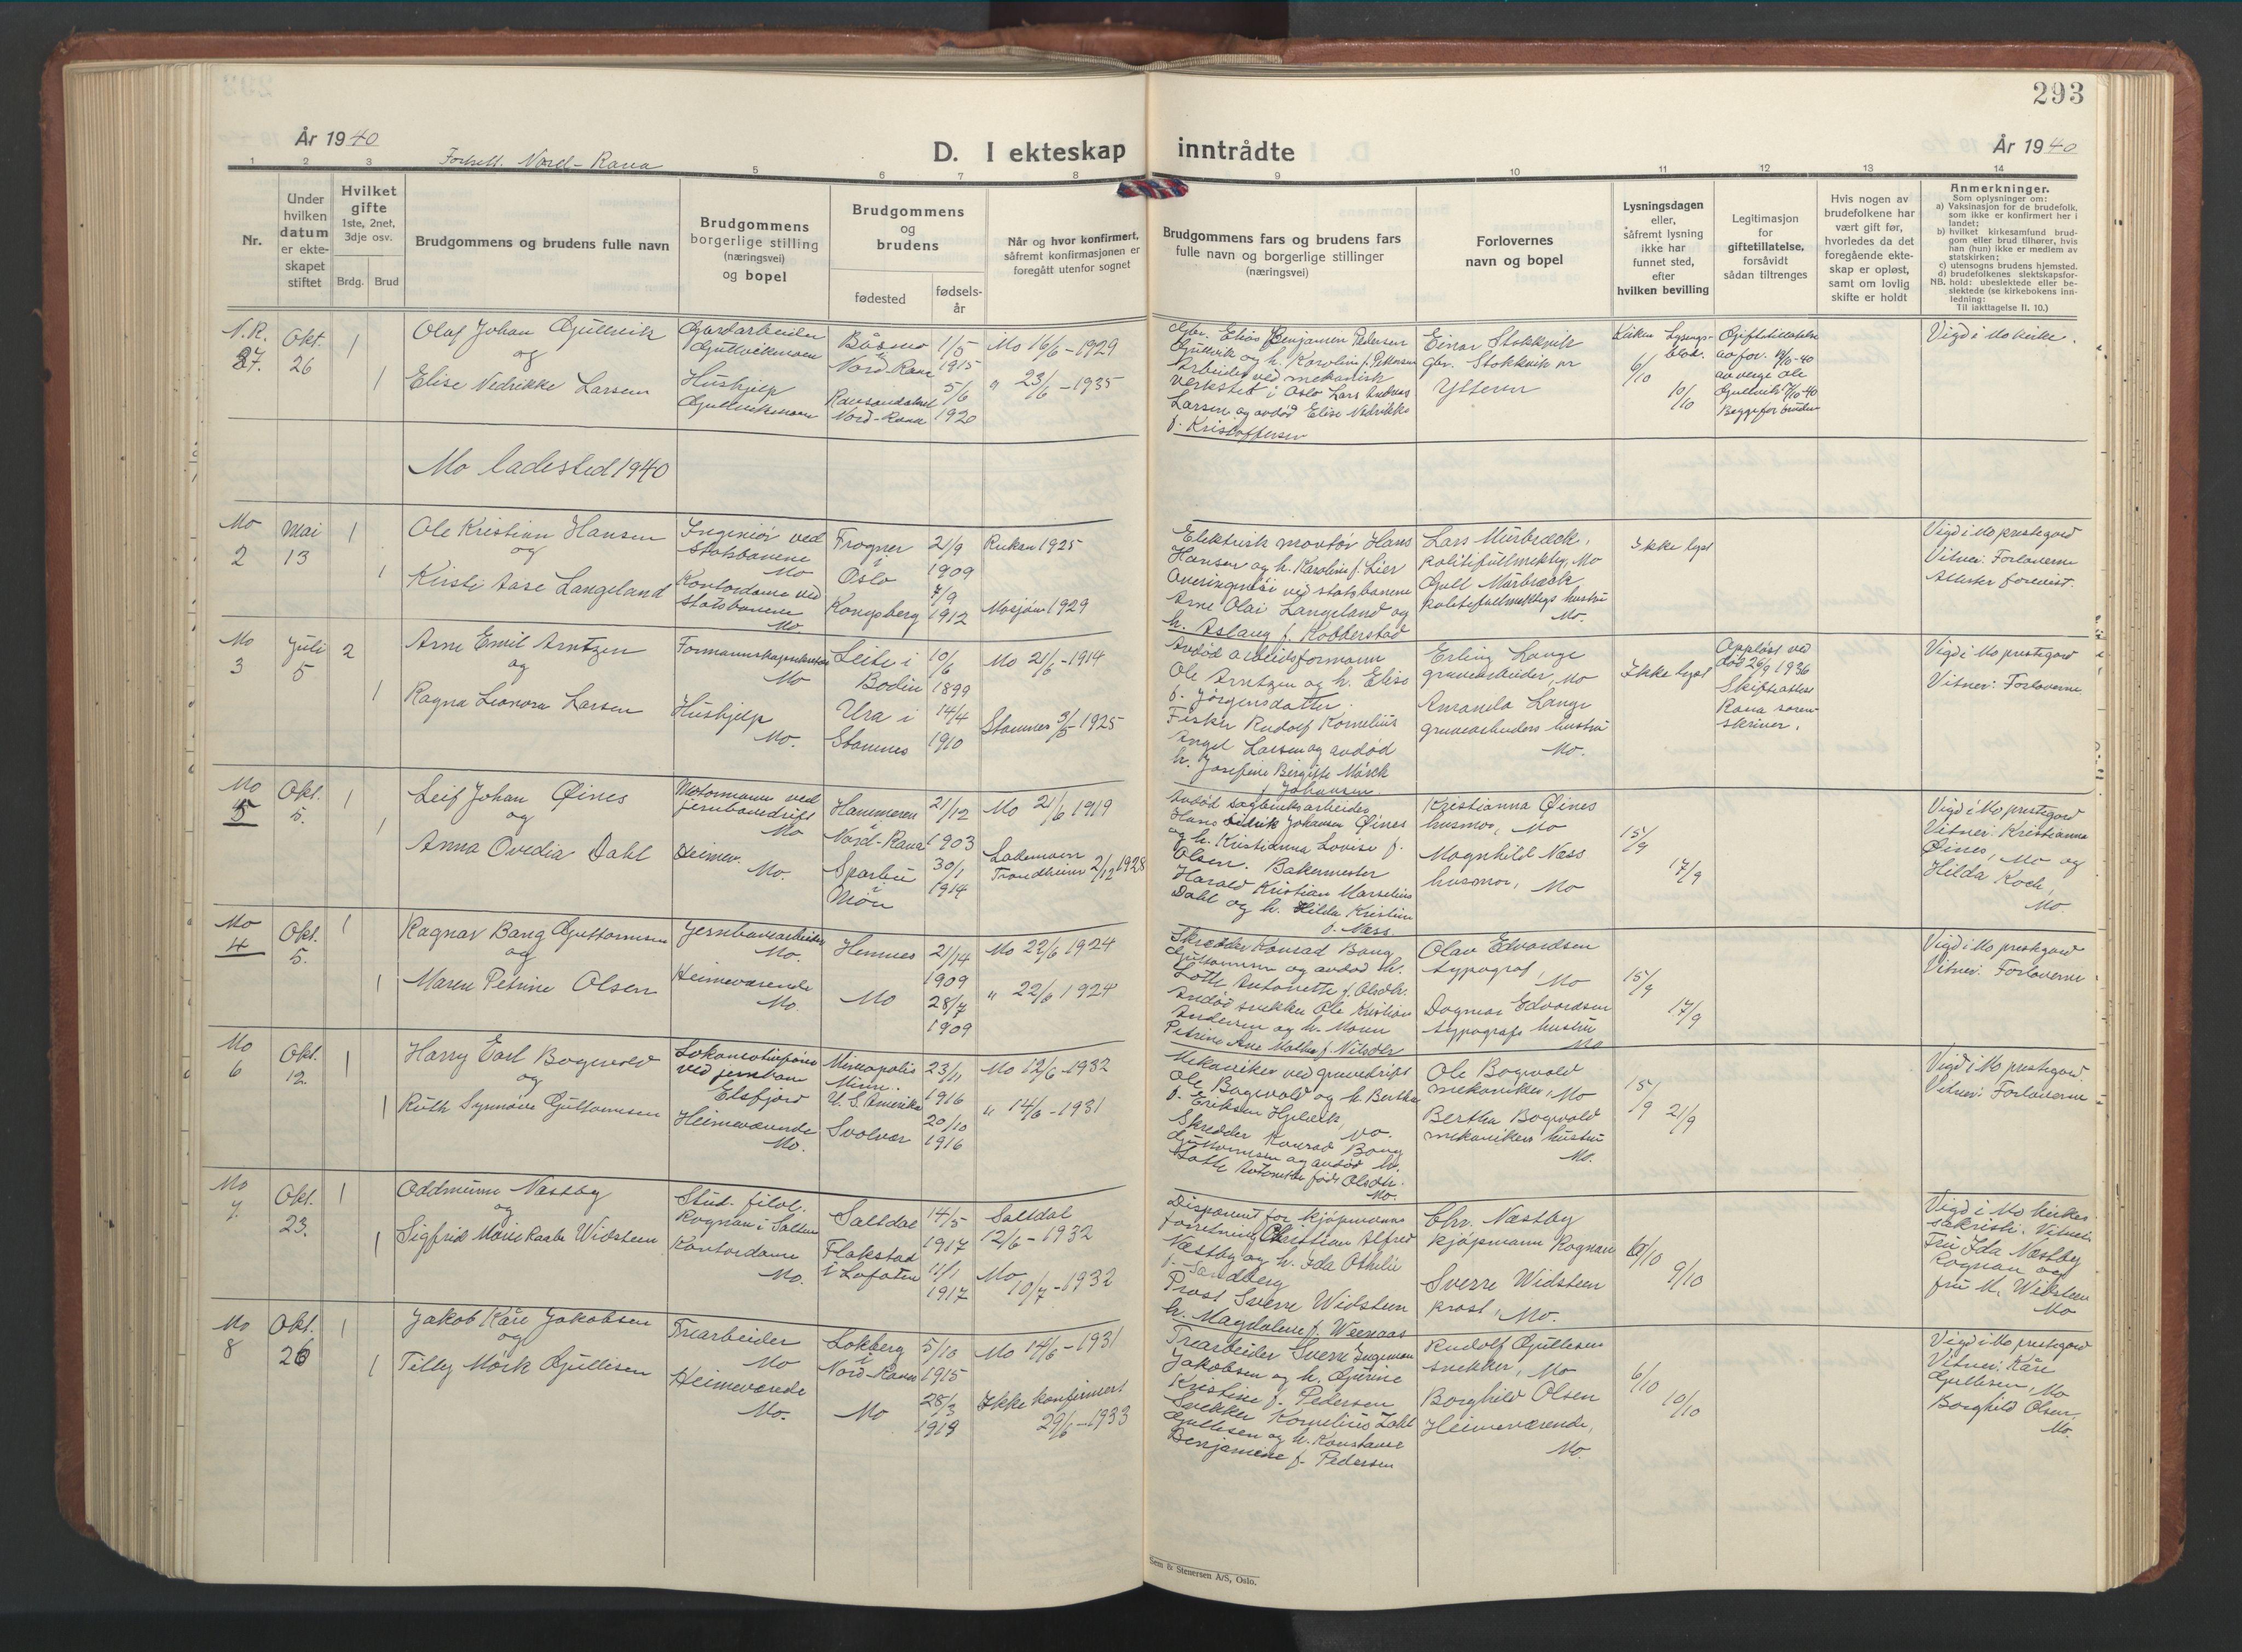 293
År 1940
Fortsett. Nord-Rana
D. I ekteskap inntrådte
År 1940
1 2 3 5 6 7 8 9 10 11 12 13 14
Nr.
Under hvilken datum er ekte-skapet stiftet
Hvilket gifte 1ste, 2net, 3dje osv.
Brdg. Brud
Brudgommens og brudens fulle navn
Brudgommens borgerlige stilling (næringsvei) og bopel
Brudgommens og brudens
fødested
fødsels-år
Når og hvor konfirmert, såfremt konfirmasjonen er foregått utenfor sognet
Brudgommens fars og brudens fars fulle navn og borgerlige stillinger (næringsvei)
Forlovernes navn og bopel
Lysningsdagen eller, såfremt lysning ikke har funnet sted, efter hvilken bevilling
Legitimasjon for giftetillatelse, forsåvidt sådan tiltrenges
Hvis nogen av brudefolkene har vært gift før, hvorledes da det foregående ekte-skap er opløst, samt om lovlig skifte er holdt
Anmerkninger.
Som oplysninger om:
a) Vaksinasjon for de brudefolk, som ikke er konfirmert her i landet;
b) hvilket kirkesamfund brud-gom eller brud tilhører, hvis han (hun) ikke er medlem av statskirken;
c) utensogns brudens hjemsted.
d) brudefolkenes slektskapsfor-hold: ubeslektede eller be-slektede (se kirkebokens inn-ledning:
NB.
Til iakttagelse II. 10.)
N.R. 27.
Okt. 26
1
1
Olaf Johan Gullvik
og
Elise Vedrikke Larsen
Gardarbeider
Gullvikmoen
Hushjelp
Gullvikmoen
Båsmo
i
Nord-Rana
Nord-Rana
1/5
1915
5/6
1920
Mo 16/6-1929
" 23/6-1935
Gbr. Elias Benjamin Pedersen
Gullvik og h. Karolin f. Pettersen
Arbeider ved mekanisk
verksted i Oslo Lars Andreas
Larsen og avdød Elise Vedrikke
f. Kristoffersen
Einar Stokkvik
gbr. Stokkvik pr
Ytteren
6/10
10/10
Giftetillatelse
av verge Ole
Gullvik 7/10-40
Begge for bruden
Vigd i Mo kirke.
Mo ladested 1940
Mo 2
Mai 13
1
1
Ole Kristian Hansen
og
Kirsti Aase Langeland
Ingeniør ved
Statsbanene
Mo
Kontordame ved
Statsbanene
Mo.
Frogner
i
Oslo
Kongsberg
21/9
1909
7/9
1912
Rjukan 1925
Mosjøen 1929
Elektrisk montør Hans
Hansen og h. Karoline f. Lier
Overingeniør ved statsbanene
Arne Olai Langeland og
h. Aslaug f. Kobberstad
Lars Murbræck,
politifullmektig, Mo
Gull Murbræck
politifullmektigs hustru
Mo.
Ikke lyst
Vigd i Mo prestegard
Vitner: Forloverne
Attester forevist.
Mo 3
Juli 5
2
1
Arne Emil Arntzen
og
Ragna Leonora Larsen
Mo
Hushjelp
Mo.
Leite i
Bodin
Ura i
Stamnes
10/6
1899
14/4
1910
Mo 21/6-1914
Stamnes 3/5-1925
Avdød arbeidsformann
Ole Arntzen og h. Elise
f. Jørgensdatter.
Fisker Rudolf Kornelius
Angel Larsen og avdød
h. Josefine Birgitte Mørck
f. Johansen.
Erling Lange
gruvearbeider, Mo
Amanda Lange
gruvearbeiders hustru
Mo.
Ikke lyst
Oppløst ved
død 26/9 1936
Skifteattest
Rana soren-
skriver.
Vigd i Mo prestegard
Vitner: Forloverne
Mo 5
Okt. 5.
1
1
Leif Johan Øines
og
Anna Ovedia Dahl
Motormann ved
jernbanedrift
Mo
Heimev.
Mo.
Hammeren
i
Nord-Rana
Sparbu
i
Møre
21/12
1903
30/1
1914
Mo 21/6 1919
Lademoen
Trondheim 2/12 1928
Avdød sagbruksarbeider
Hans Johansen Øines
og h. Kristianna Lovise f.
Olsen. Bakermester
Harald Kristian Marselius
Dahl og h. Hilda Kristine
f. Næss
Kristianna Øines
husmor, Mo
Magnhild Næss
husmor, Mo
15/9
17/9
Vigd i Mo prestegard
Vitner: Kristianna
Øines, Mo og
Hilda Koch,
Mo.
Mo 4
Okt. 5.
1
1
Ragnar Bang Guttormsen
og
Maren Petrine Olsen
Jernbanearbeider
Mo.
Heimeværende
Mo.
Hemnes
Mo
1909
28/7
1909
Mo 22/6 1924
" 22/6 1924
Skredder Konrad Bang
Guttormsen og avdød h.
Lotte Antonette f. Olsdtr.
Avdød snekker Ole Kristian
Andersen og h. Maren
Petrine Ane Malka f. Nilsdtr
Olav Edvardsen
typograf,
Mo
Dagmar Edvardsen
typografs hustru
Mo
15/9
17/9
Vigd i Mo prestegard
Vitner: Forloverne
Mo 6
Okt. 12.
1
1
Harry Earl Bogvold
og
Ruth Synnøve Guttormsen
ved jernbane
Elsfjord
Heimeværende
Mo.
Mineapolis
Minn.
U.S. Amerika
Svolvær
23/11
1916
20/10
1916
Mo 12/6-1932
" 14/6-1931
Mekaniker ved gruvedrift
Ole Bogvold og h. Bertha
f. Eriksen
Skredder Konrad Bang
Guttormsen og avdød h.
Lotte Antonette født Olsdtr.
Mo.
Ole Bogvold
mekaniker, Mo
Bertha Bogvold
mekanikers hustru
Mo.
15/9
21/9
Vigd i Mo prestegard.
Vitner: Forloverne
Mo 7.
Okt. 23.
1
1
Oddmunn Næstby
og
Sigfrid Marie Widsteen
Stud. filol.
Rognan i Salten
Kontordame
Mo.
Saltdal
Flakstad
i Lofoten
14/5
1917
11/1
1917
Saltdal
12/6-1932
Mo
10/7-1932
Disponent for kjøpmanns-
forretning Christian Alfred
Næstby og h. Ida Othelie
f. Sandberg
Prost Sverre Widsteen
h. Magdalene f. Weenaas
Chr. Næstby
kjøpmann Rognan
Sverre Widsteen
prost, Mo.
6/10
9/10
Vigd i Mo kirkes
sakristi. Vitner:
Fru Ida Næstby
Rognan og
fru M. Widsteen
Mo
Mo 8
Okt. 26
1
1
Jakob Kåre Jakobsen
og
Tilly Mörk Gullesen
Trearbeider
Mo
Heimeværende
Mo.
Lokberg
i
Nord-Rana
Mo
5/10
1915
28/3
1919
Mo 14/6-1931
Ikke konfirmert
29/6-1933
Trearbeider Sverre Ingeman
Jakobsen og h. Gurine
Kristine f. Pedersen
Snekker Kornelius Zahl
Gullesen og h. Konstanse
Benjamine f. Pedersen
Rudolf Gullesen
snekker, Mo
Borghild Olsen
Heimeværende,
Mo.
6/10
10/10
Vigd i Mo prestegard
Vitner: Kåre
Gullesen, Mo
Borghild Olsen,
Mo.
Sem & Stenersen A/S, Oslo.